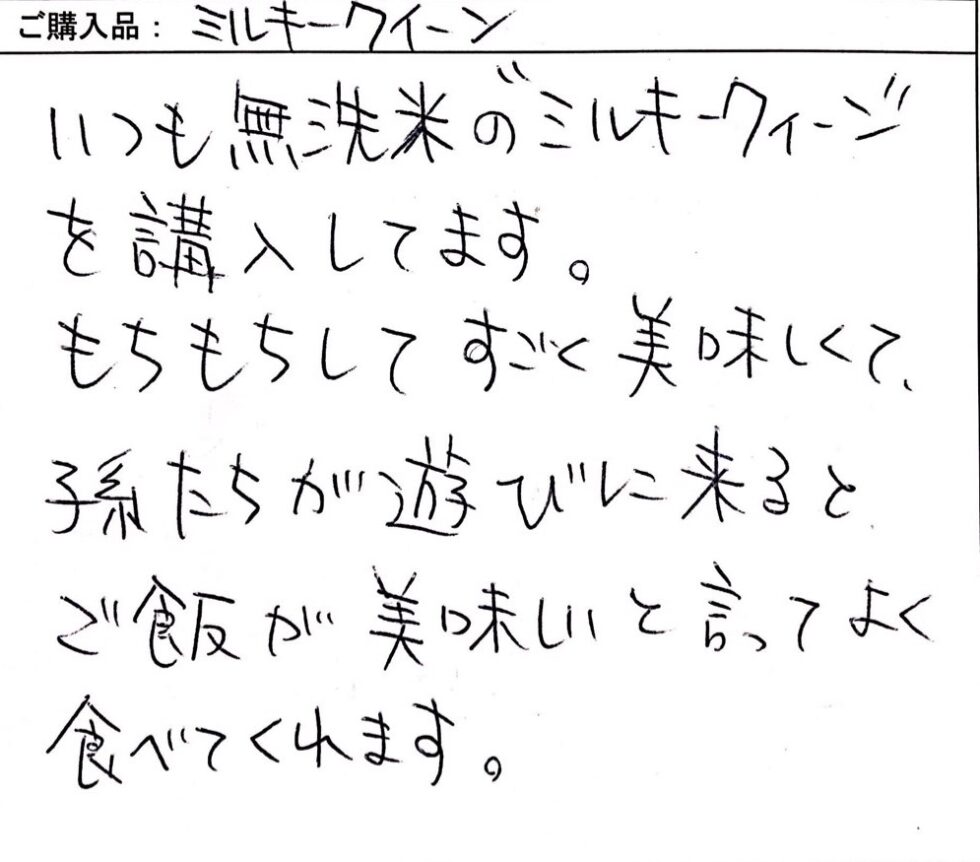 ご購入品： ミルキークイーン
いつも無洗米の"ミルキークィーン"
を講入してます。
もちもちしてすごく美味しくて、
孫たちが遊びに来ると
ご飯が美味しいと言ってよく
食べてくれます。